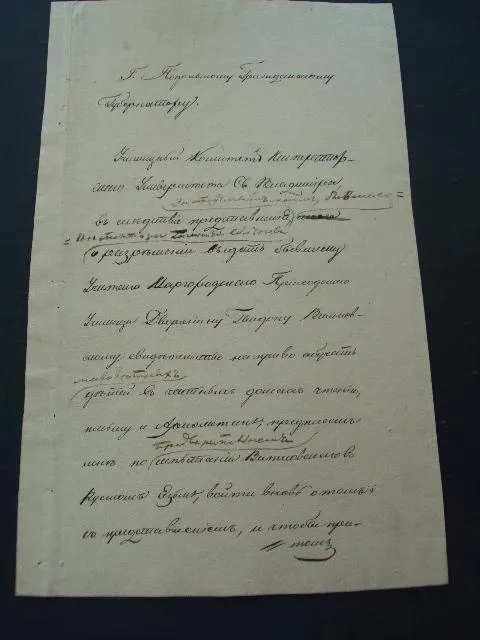 Г. Подольскому Гражданскому
Губернатору.
Училищный Комитетъ Император-
скаго Университета Св. Владиміра
въ слѣдствіе представленія
о разрѣшеніи выдать бывшему
Учителю Миргородскаго Приходскаго
Училища Дворянину Витков-
скому свидѣтельство на право обучать
дѣтей въ частныхъ домахъ чтенію,
письму и Ариѳметикѣ, предписалъ
мнѣ по испытаніи Витковскаго въ
Русскомъ Языкѣ, войти вновь о томъ
съ представленіемъ, и чтобы при-
томъ